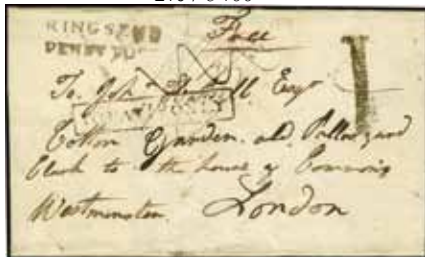 KINGSEND
PENNY POST
Free
To John Esqr
Cotton Garden. old Pallas yard
Clerk to the house of Commons
Westminster. London